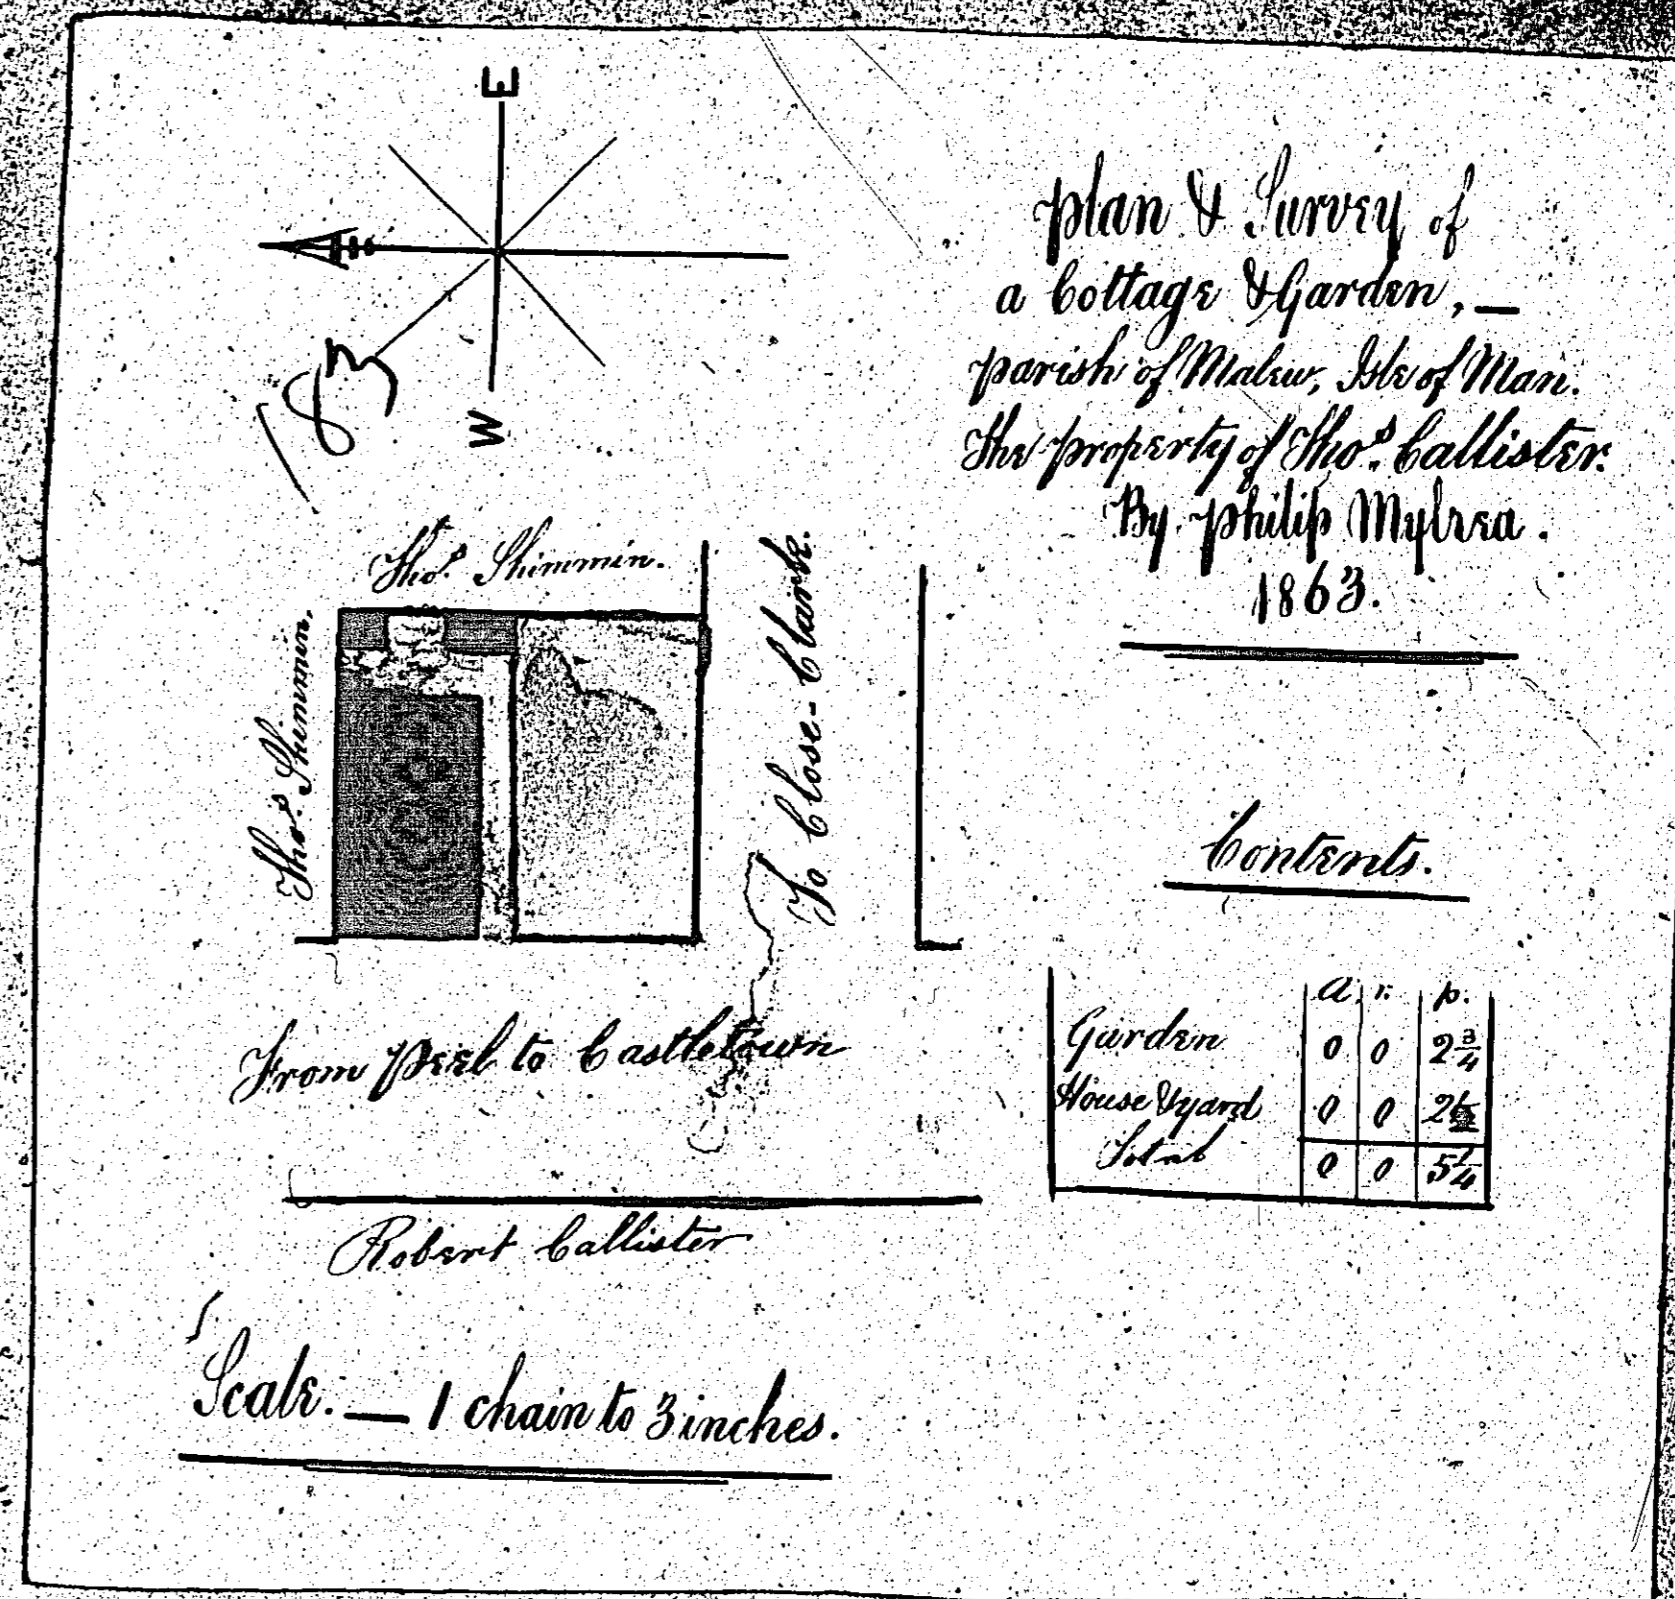 E
W
183
Plan & Survey of
a Cottage & Garden, —
Parish of Malew, Isle of Man.
The Property of Thos. Callister.
By Philip Mylrea.
1863.
Thos. Shimmin.
Thos. Shimmin.
To Close-Clark.
From Peel to Castletown
Robert Callister
Scale. — 1 chain to 3 inches.
Contents.
a. r. p.
Garden 0 0 2 3/4
House & yard 0 0 2
Total 0 0 5 1/4